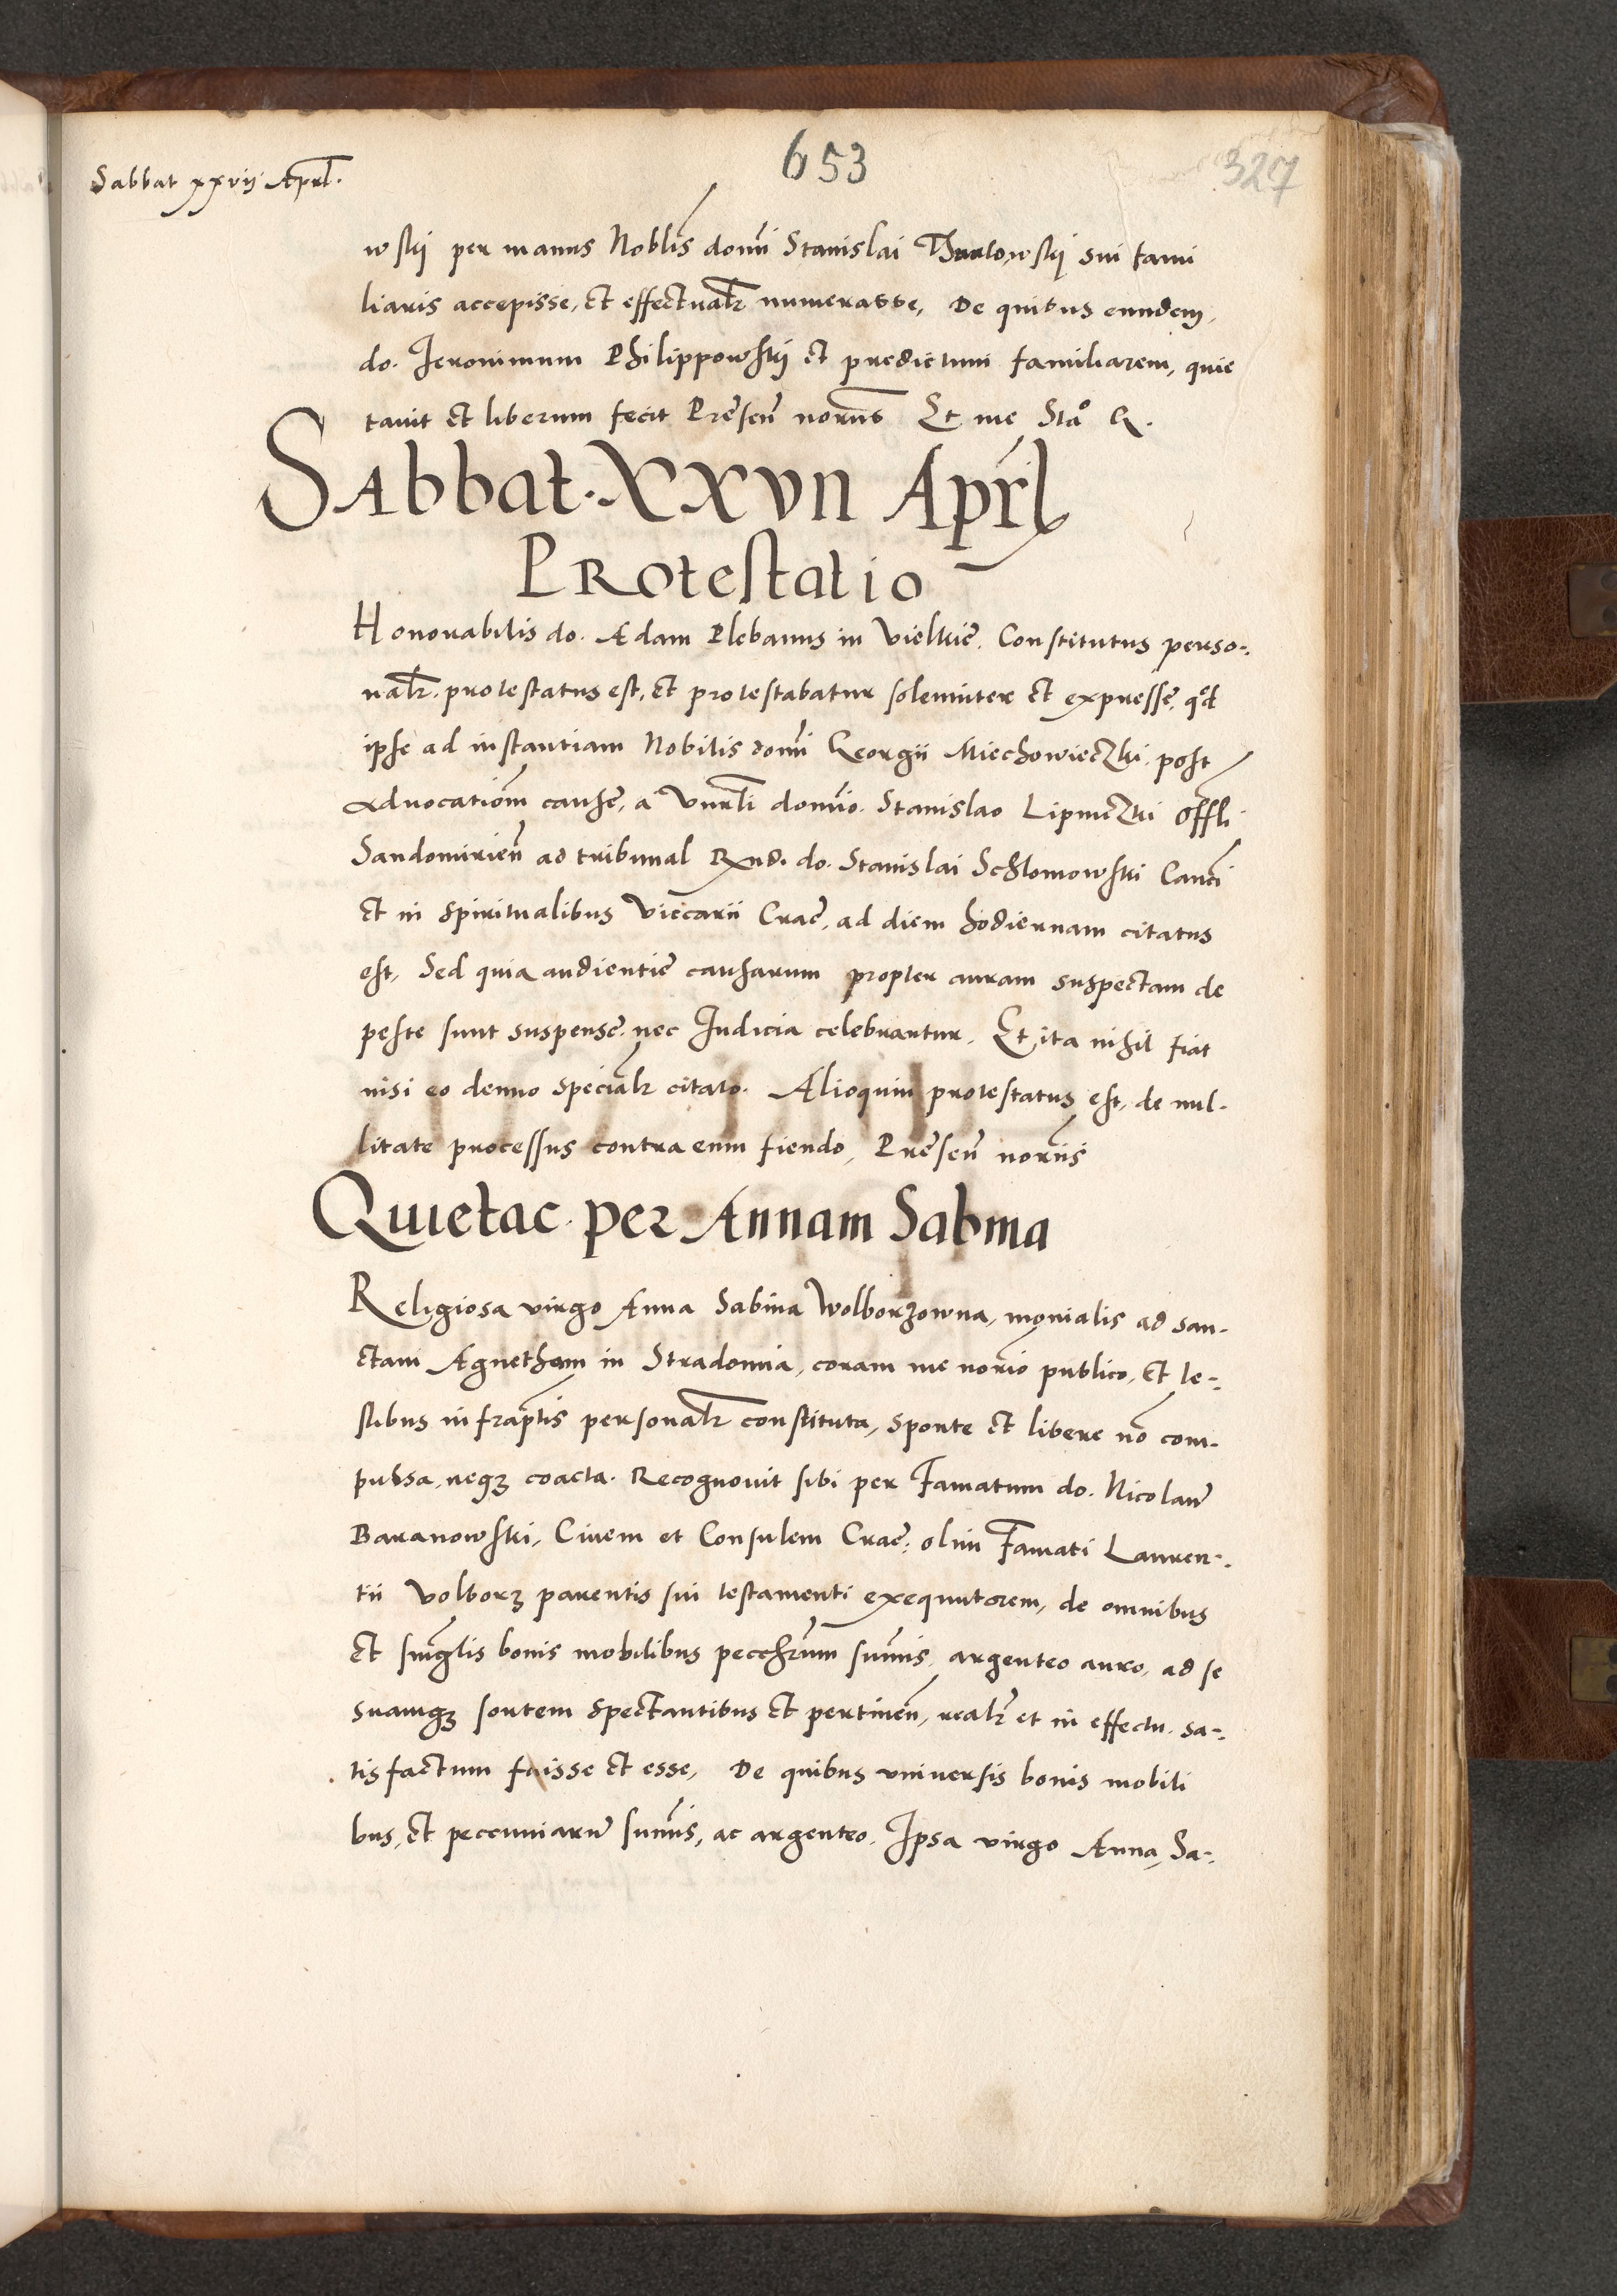 653
327
Sabbat xxvij Aprl.
wskij per manus Noblis domi Stanislai sui fami
liaris accepisse, et effectualr numerasse, De quibus eundem,
do. Jeronimum Philippowskij et predictum familiarem, quie
tavit et liberum fecit Presen noriis Et me Sta° G.
SAbbat. XXVII Aprl
PRotestatio
Honorabilis do. Adam Plebanus in Vielkie. Constitutus perso-
nalr. protestatus est, et protestabatur solemniter et expresse, qod
ipse ad instantiam Nobilis domi Georgii Miechowieczki. post
Advocationm cause, a Vnrli domino. Stanislao Lipniczki offli
Sandomirien ad tribunal Rnd. do. Stanislai Schlomowski Canci
et in spiritualibus Viccarii Crac. ad diem hodiernam citatus
est, Sed quia audientie causarum propter auram suspectam de
peste sunt suspense. nec Iudicia celebrantur. Et ita nihil fiat
nisi eo denuo specialr citato. Alioquin protestatus est, de nul-
litate processus contra eum fiendo, Presen noriis
Quietac. per Annam Sabina
Religiosa virgo Anna Sabina Wolborzowna, monialis ad san-
ctam Agnetham in Stradomia, coram me norio publico, et te-
stibus infraptis personalr constituta, sponte et libere no com-
pulsa, neq3 coacta. Recognovit sibi per Famatum do. Nicolau
Baranowski, Civem et Consulem Crac: olim Famati Lauren-
tii Volborz parentis sui testamenti exequutorem, de omnibus
et singlis bonis mobilibus summis, argenteo auro, ad se
suamq3 sortem spectantibus et pertinen, realr et in effectu. sa-
tisfactum fuisse et esse, De quibus vniversis bonis mobili
bus, et peccuniaru sumis, ac argenteo. Ipsa virgo Anna, Sa-